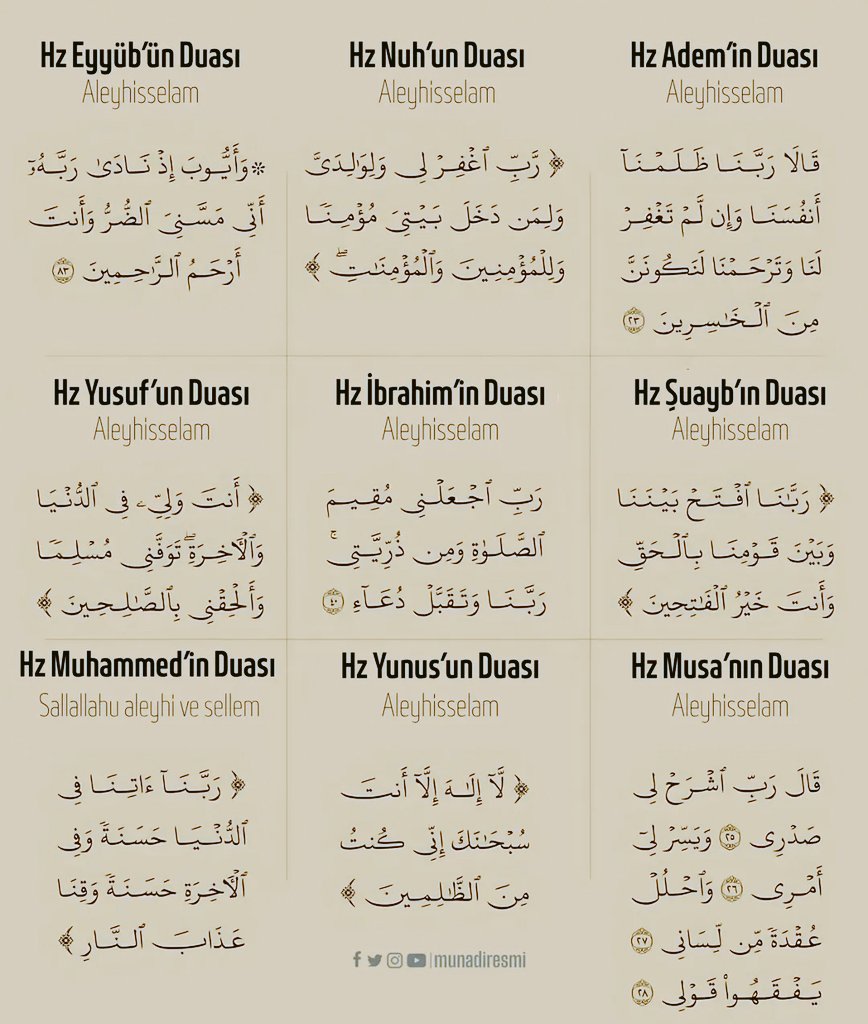 Hz Eyyüb’ün Duası
Aleyhisselam
۞وَأَيُّوبَ إِذۡ نَادَىٰ رَبَّهُۥٓ
أَنِّي مَسَّنِيَ ٱلضُّرُّ وَأَنتَ
أَرۡحَمُ ٱلرَّٰحِمِينَ ٨٣
Hz Nuh’un Duası
Aleyhisselam
﴿ رَّبِّ ٱغۡفِرۡ لِي وَلِوَٰلِدَيَّ
وَلِمَن دَخَلَ بَيۡتِيَ مُؤۡمِنٗا
وَلِلۡمُؤۡمِنِينَ وَٱلۡمُؤۡمِنَٰتِۖ ﴾
Hz Adem’in Duası
Aleyhisselam
قَالَا رَبَّنَا ظَلَمۡنَآ
أَنفُسَنَا وَإِن لَّمۡ تَغۡفِرۡ
لَنَا وَتَرۡحَمۡنَا لَنَكُونَنَّ
مِنَ ٱلۡخَٰسِرِينَ ٢٣
Hz Yusuf’un Duası
Aleyhisselam
﴿ أَنتَ وَلِيِّۦ فِي ٱلدُّنۡيَا
وَٱلۡأٓخِرَةِۖ تَوَفَّنِي مُسۡلِمٗا
وَأَلۡحِقۡنِي بِٱلصَّٰلِحِينَ ﴾
Hz İbrahim’in Duası
Aleyhisselam
رَبِّ ٱجۡعَلۡنِي مُقِيمَ
ٱلصَّلَوٰةِ وَمِن ذُرِّيَّتِيۚ
رَبَّنَا وَتَقَبَّلۡ دُعَآءِ ٤٠
Hz Şuayb’ın Duası
Aleyhisselam
﴿ رَبَّنَا ٱفۡتَحۡ بَيۡنَنَا
وَبَيۡنَ قَوۡمِنَا بِٱلۡحَقِّ
وَأَنتَ خَيۡرُ ٱلۡفَٰتِحِينَ ﴾
Hz Muhammed’in Duası
Sallallahu aleyhi ve sellem
﴿ رَبَّنَآ ءَاتِنَا فِي
ٱلدُّنۡيَا حَسَنَةٗ وَفِي
ٱلۡأٓخِرَةِ حَسَنَةٗ وَقِنَا
عَذَابَ ٱلنَّارِ ﴾
Hz Yunus’un Duası
Aleyhisselam
﴿ لَّآ إِلَٰهَ إِلَّآ أَنتَ
سُبۡحَٰنَكَ إِنِّي كُنتُ
مِنَ ٱلظَّٰلِمِينَ ﴾
Hz Musa’nın Duası
Aleyhisselam
قَالَ رَبِّ ٱشۡرَحۡ لِي
صَدۡرِي ٢٥ وَيَسِّرۡ لِيٓ
أَمۡرِي ٢٦ وَٱحۡلُلۡ
عُقۡدَةٗ مِّن لِّسَانِي ٢٧
يَفۡقَهُواْ قَوۡلِي ٢٨
munadiresmi